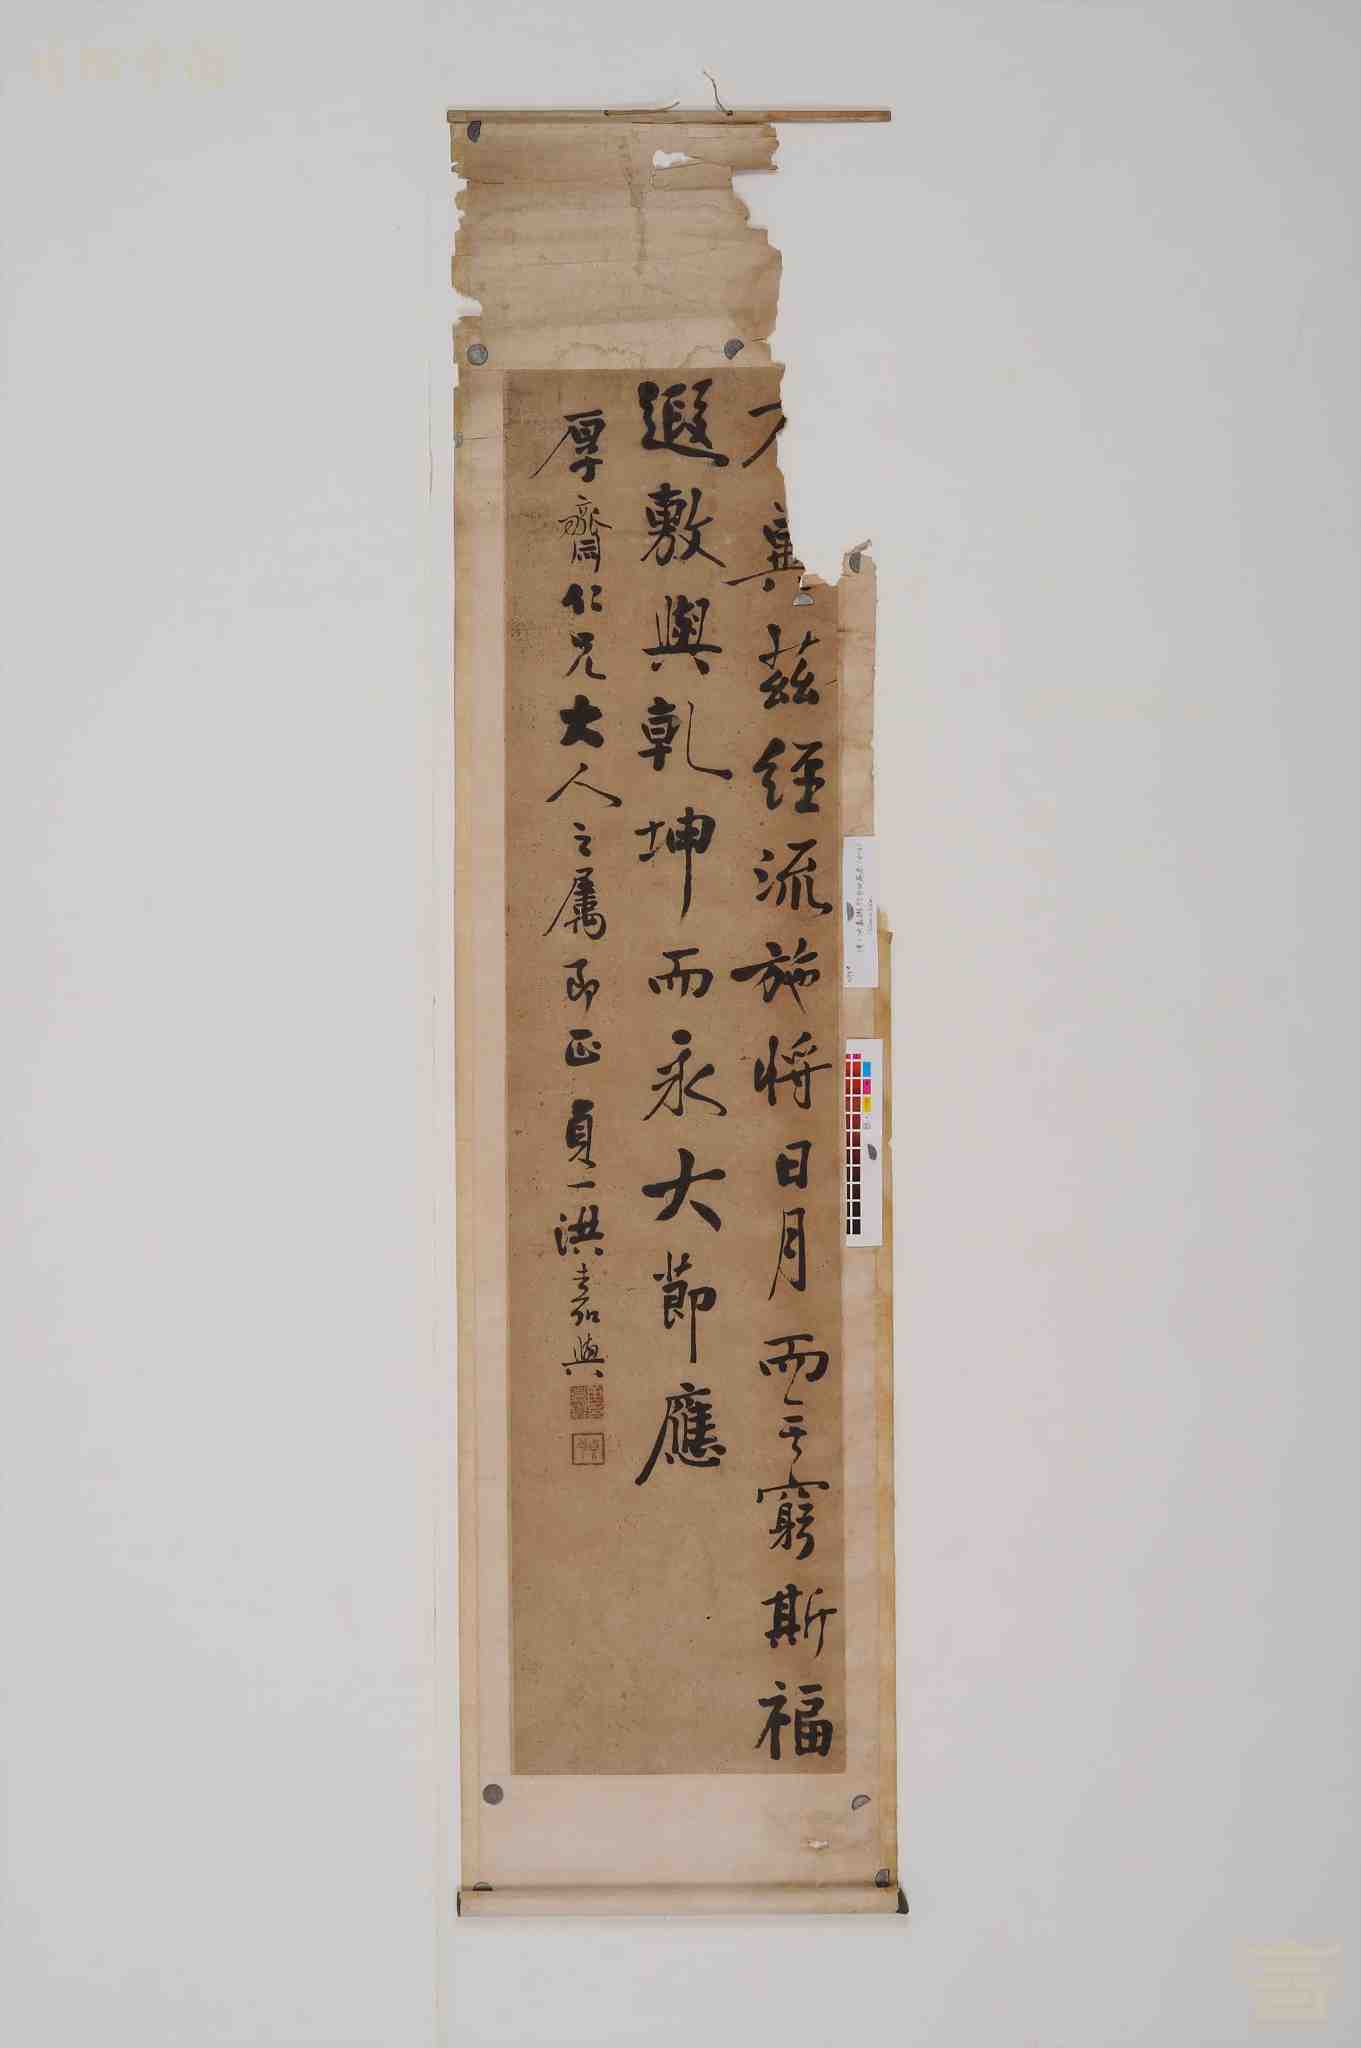 冀茲經流施將日月而无窮斯福
遐敷與乾坤而永大節應
厚齋同仁兄大人之属即正 貞一洪嘉與